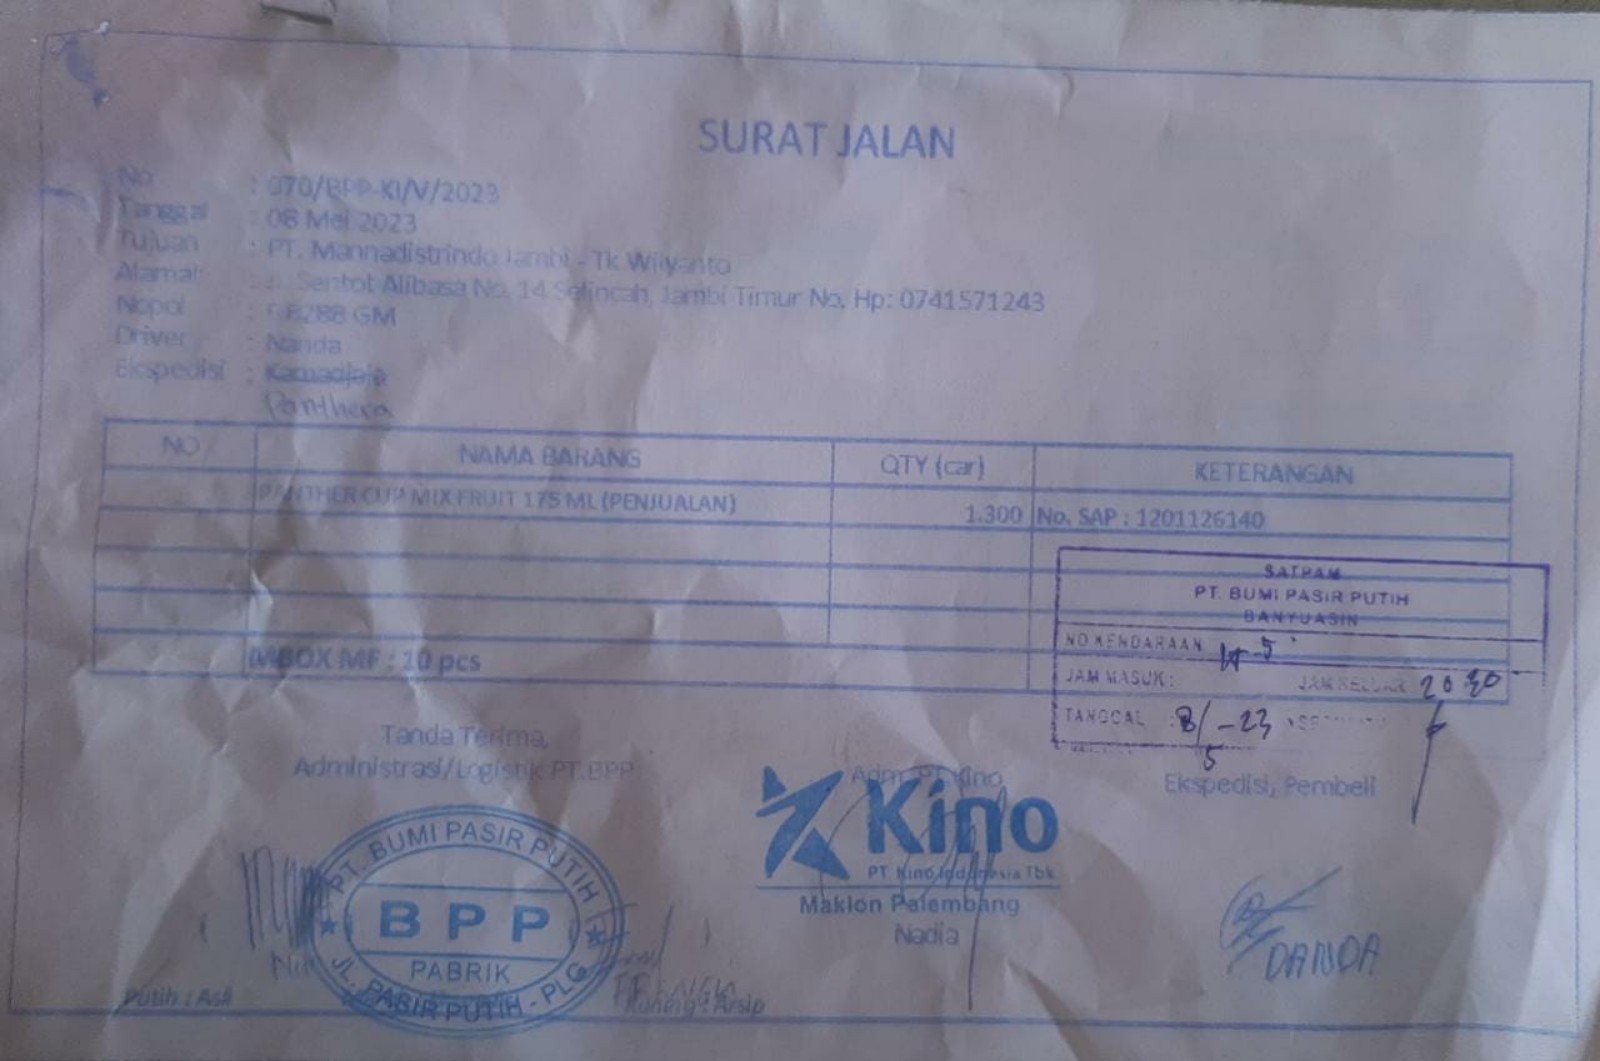 SURAT JALAN
No : 070/BPP-KI/V/2023
Tanggal : 08 Mei 2023
Tujuan : PT. Mannadistrindo Jambi - Tk Wilyanto
Alamat : Jl. Sentot Alibasa No. 14 Selincah, Jambi Timur No. Hp: 0741571243
Nopol : 8288 GM
Driver : Nanda
Ekspedisi : Kamadjaja
Panthera
NO NAMA BARANG QTY (car) KETERANGAN
PANTHER CUP MIX FRUIT 175 ML (PENJUALAN) 1.300 No. SAP : 1201126140
SATPAM
PT. BUMI PASIR PUTIH
BANYUASIN
NO KENDARAAN
MF : 10 pcs
JAM MASUK : JAM KELUAR
TANGGAL : 8/5-23
Tanda Terima,
Administrasi/Logistik PT.BPP
Adm PT Kino
Ekspedisi, Pembeli
Kino
PT Kino Indonesia Tbk
Maklon Palembang
Nadia
PT. BUMI PASIR PUTIH
BPP
PABRIK
JL. PASIR PUTIH - PLG
DANDA
Putih : Asli
Kuning : Arsip